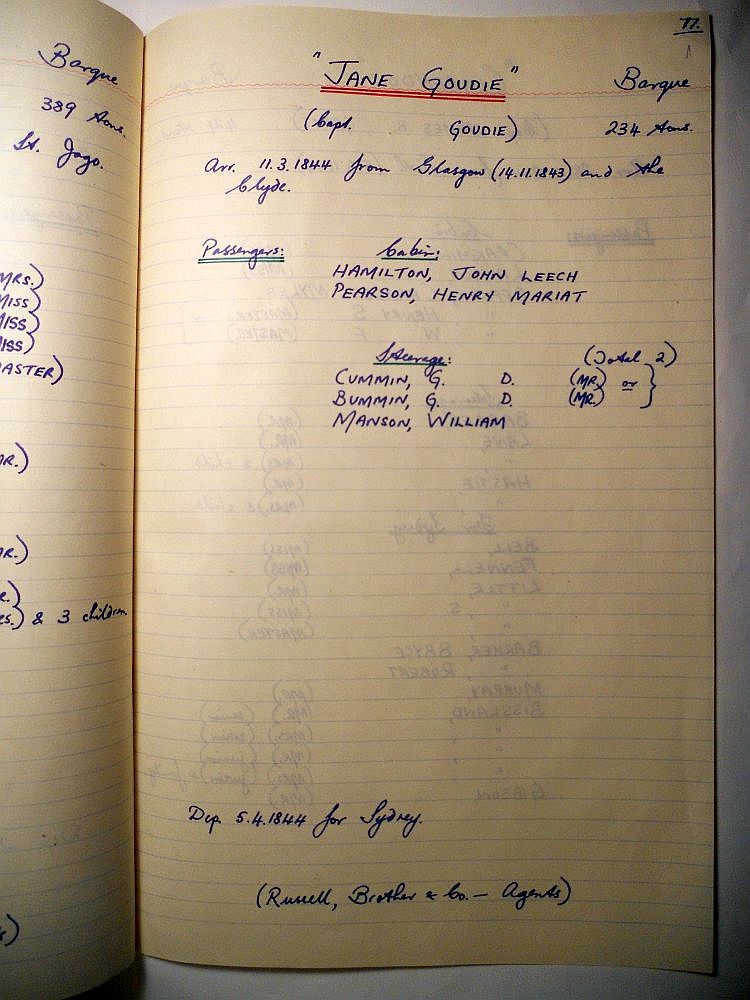 Barque
389 tons.
St. Jago.
MRS.)
MISS)
MISS)
MISS)
MASTER)
MR.)
MR.)
& 3 children
77.
"JANE GOUDIE" Barque
(Capt. GOUDIE) 234 tons.
Arr. 11.3.1844 from Glasgow (14.11.1843) and the
Clyde.
Passengers: Cabin:
HAMILTON, JOHN LEECH
PEARSON, HENRY MARIAT
Steerage: (Total 2)
CUMMIN, G. D. (MR.) or }
BUMMIN, G. D. (MR.)
MANSON, WILLIAM
Dep. 5.4.1844 for Sydney.
(Russell, Brother & Co. — Agents)